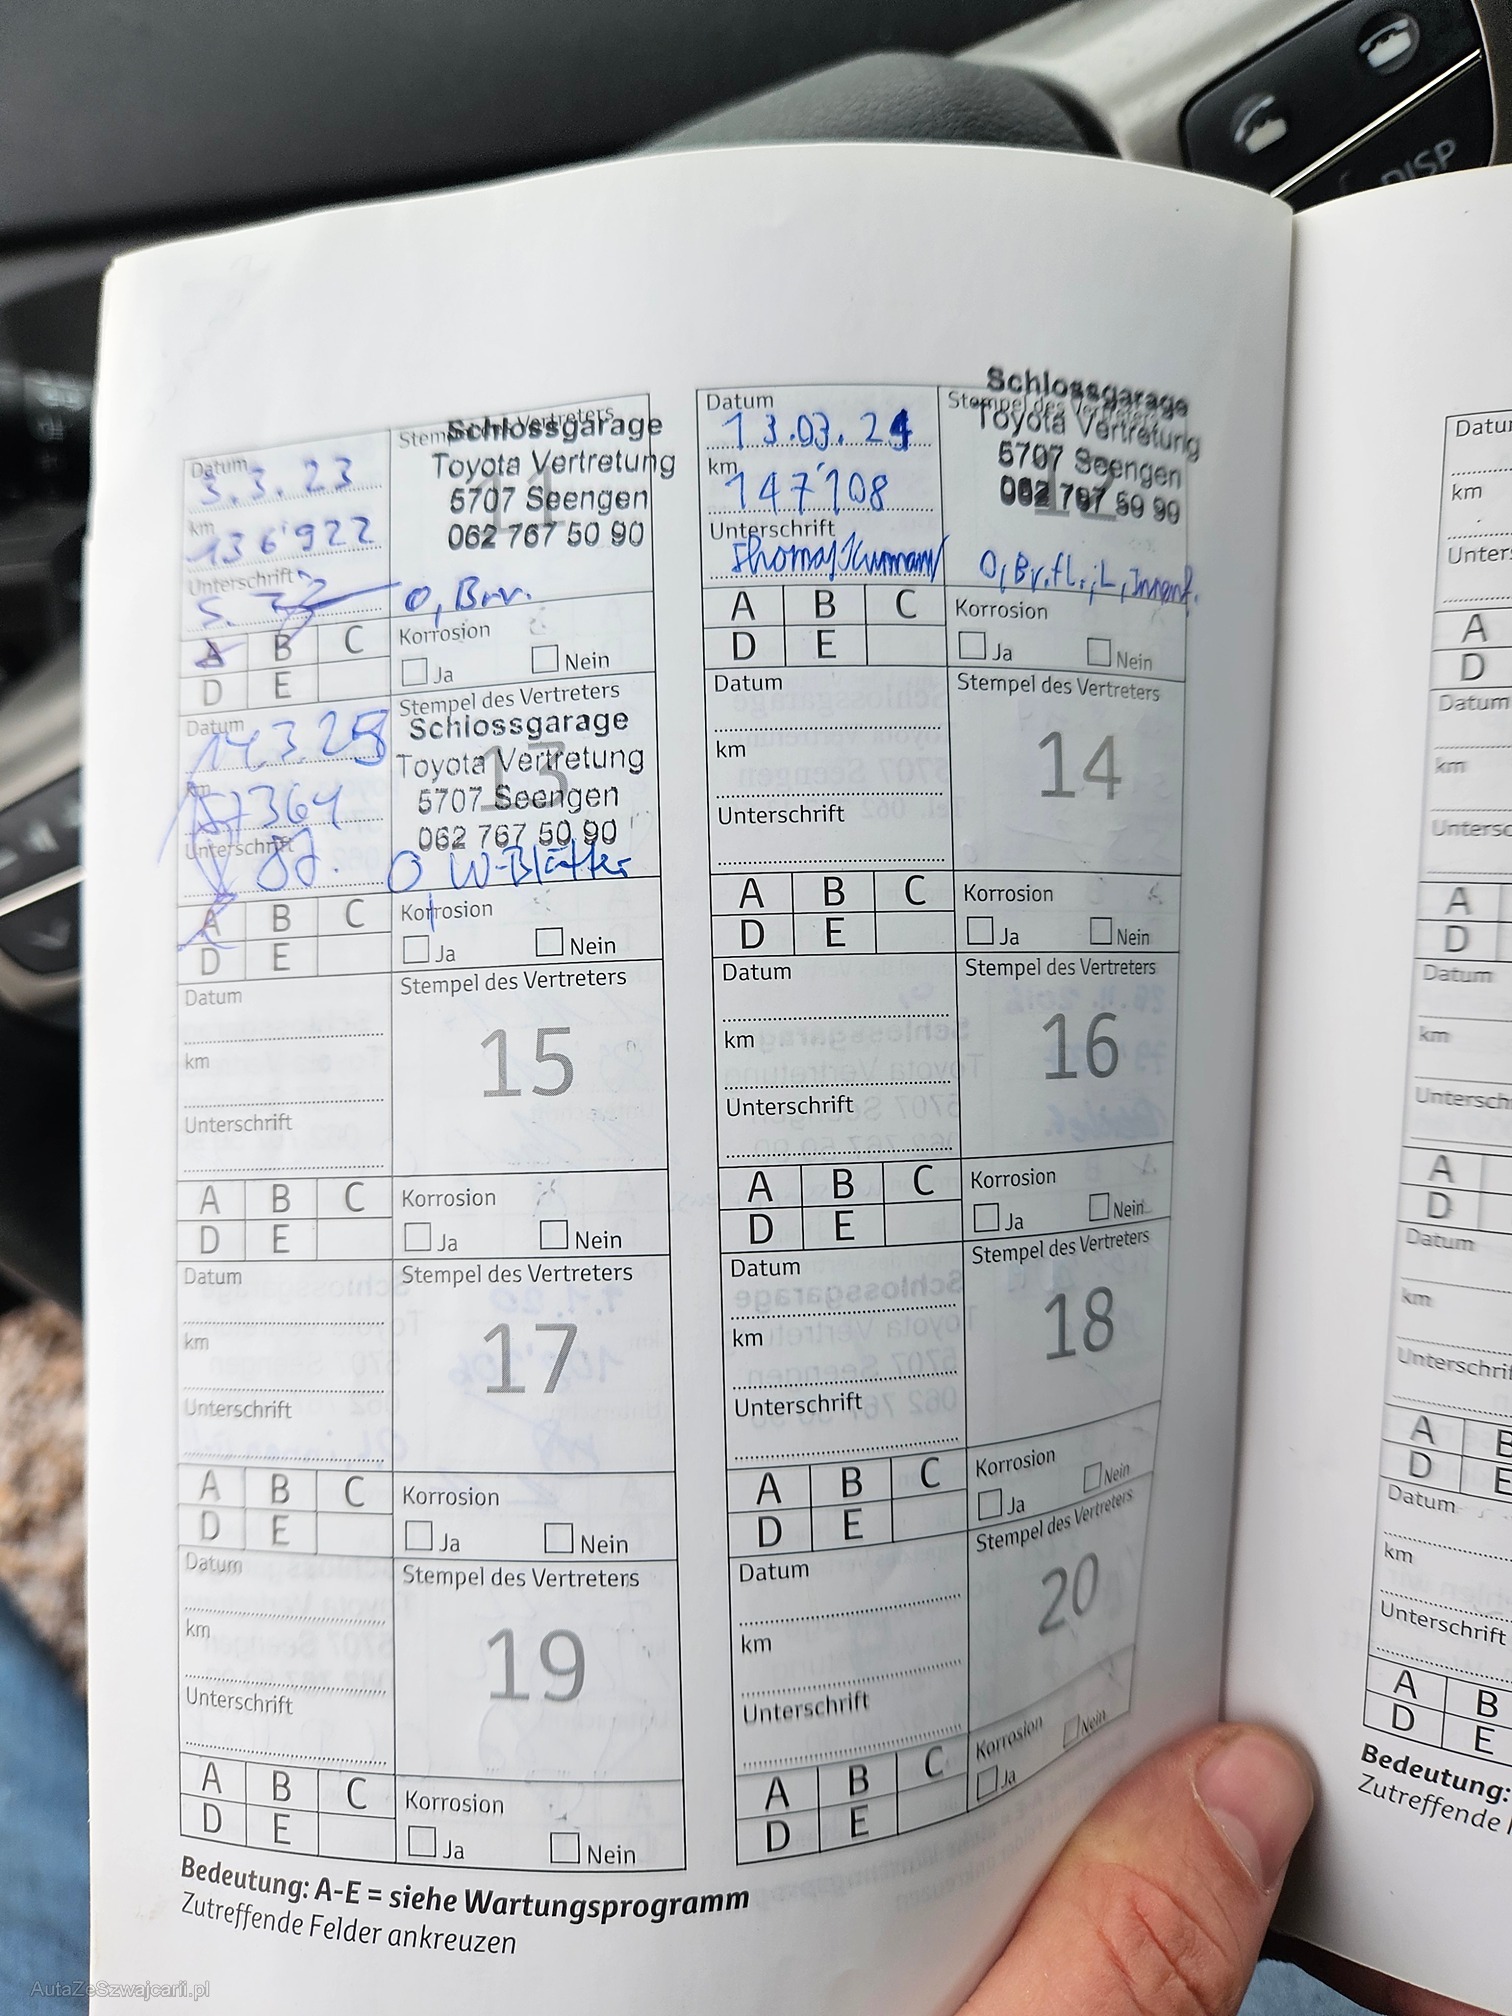 DISP
Datum
3.3.23
km
136'922
Unterschrift
Stempel des Vertreters
11
Schlossgarage
Toyota Vertretung
5707 Seengen
062 767 50 90
O, Brv.
A B C
D E
Korrosion
Ja Nein
Datum
13.03.24
km
147'108
Unterschrift
Stempel des Vertreters
12
Schlossgarage
Toyota Vertretung
5707 Seengen
062 767 50 90
O, Br.fl., L, Innenf.
A B C
D E
Korrosion
Ja Nein
Datum
14.3.25
km
157364
Unterschrift
Stempel des Vertreters
13
Schlossgarage
Toyota Vertretung
5707 Seengen
062 767 50 90
O, W-Blätter
A B C
D E
Korrosion
Ja Nein
Datum
km
Unterschrift
Stempel des Vertreters
14
A B C
D E
Korrosion
Ja Nein
Datum
km
Unterschrift
Stempel des Vertreters
15
A B C
D E
Korrosion
Ja Nein
Datum
km
Unterschrift
Stempel des Vertreters
16
A B C
D E
Korrosion
Ja Nein
Datum
km
Unterschrift
Stempel des Vertreters
17
A B C
D E
Korrosion
Ja Nein
Datum
km
Unterschrift
Stempel des Vertreters
18
A B C
D E
Korrosion
Ja Nein
Datum
km
Unterschrift
Stempel des Vertreters
19
A B C
D E
Korrosion
Ja Nein
Datum
km
Unterschrift
Stempel des Vertreters
20
A B C
D E
Korrosion
Ja Nein
Bedeutung: A-E = siehe Wartungsprogramm
Zutreffende Felder ankreuzen
km
A
D
Datum
km
A
D
Datum
km
A
D
Datum
km
A B
D E
Datum
km
Unterschrift
A B
D E
Bedeutung:
Zutreffende
AutaZeSzwajcarii.pl